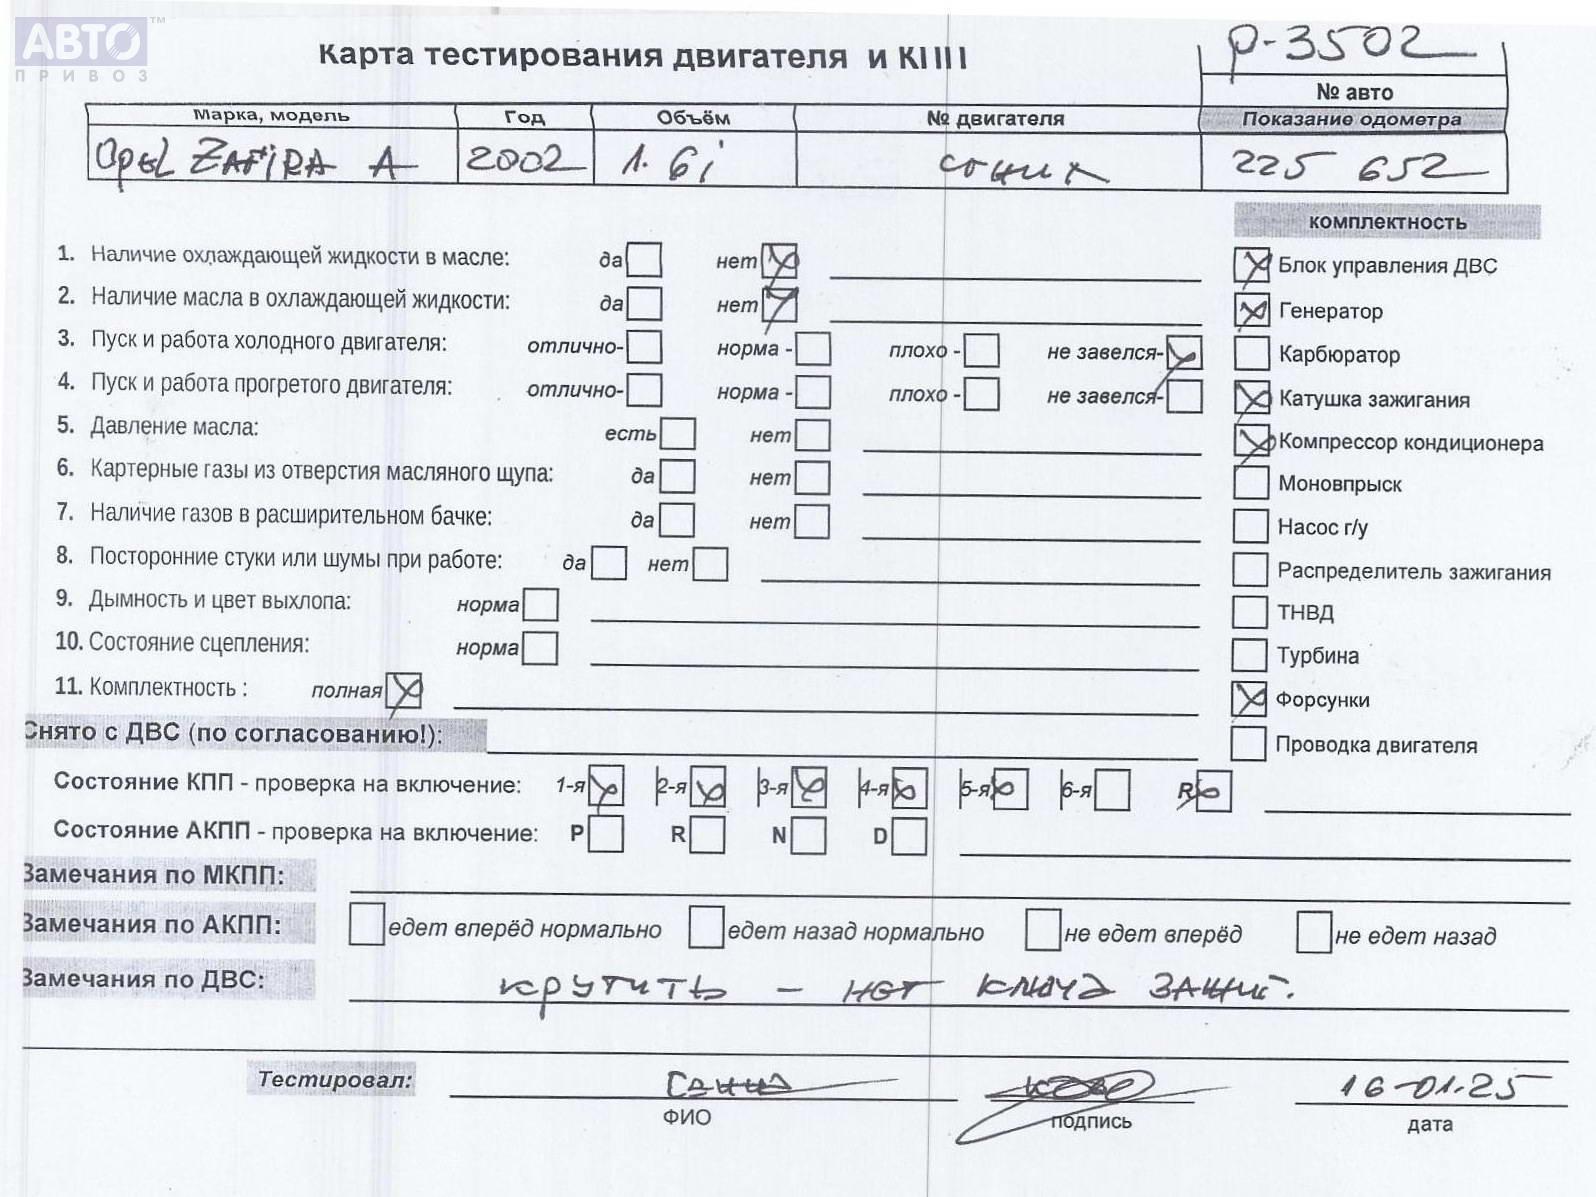 АВТО™
ПРИВОЗ
Карта тестирования двигателя и КПП
р-3502
№ авто
Марка, модель Год Объём № двигателя Показание одометра
Opel ZAFIRA A 2002 1.6i 225 652
комплектность
1. Наличие охлаждающей жидкости в масле: да нет
2. Наличие масла в охлаждающей жидкости: да нет
3. Пуск и работа холодного двигателя: отлично- норма - плохо - не завелся-
4. Пуск и работа прогретого двигателя: отлично- норма - плохо - не завелся-
5. Давление масла: есть нет
6. Картерные газы из отверстия масляного щупа: да нет
7. Наличие газов в расширительном бачке: да нет
8. Посторонние стуки или шумы при работе: да нет
9. Дымность и цвет выхлопа: норма
10. Состояние сцепления: норма
11. Комплектность : полная
Блок управления ДВС
Генератор
Карбюратор
Катушка зажигания
Компрессор кондиционера
Моновпрыск
Насос г/у
Распределитель зажигания
ТНВД
Турбина
Форсунки
Проводка двигателя
Снято с ДВС (по согласованию!):
Состояние КПП - проверка на включение: 1-я 2-я 3-я 4-я 5-я 6-я R
Состояние АКПП - проверка на включение: P R N D
Замечания по МКПП:
Замечания по АКПП: едет вперёд нормально едет назад нормально не едет вперёд не едет назад
Замечания по ДВС: крутить - нет ключа зажиг.
Тестировал: 16-01.25
ФИО подпись дата